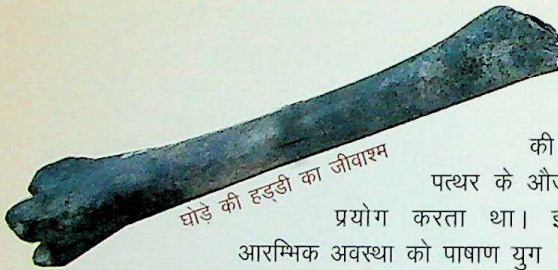 घोड़े की हड्डी का जीवाश्म
की
पत्थर के
प्रयोग करता था।
आरम्भिक अवस्था को पाषाण युग